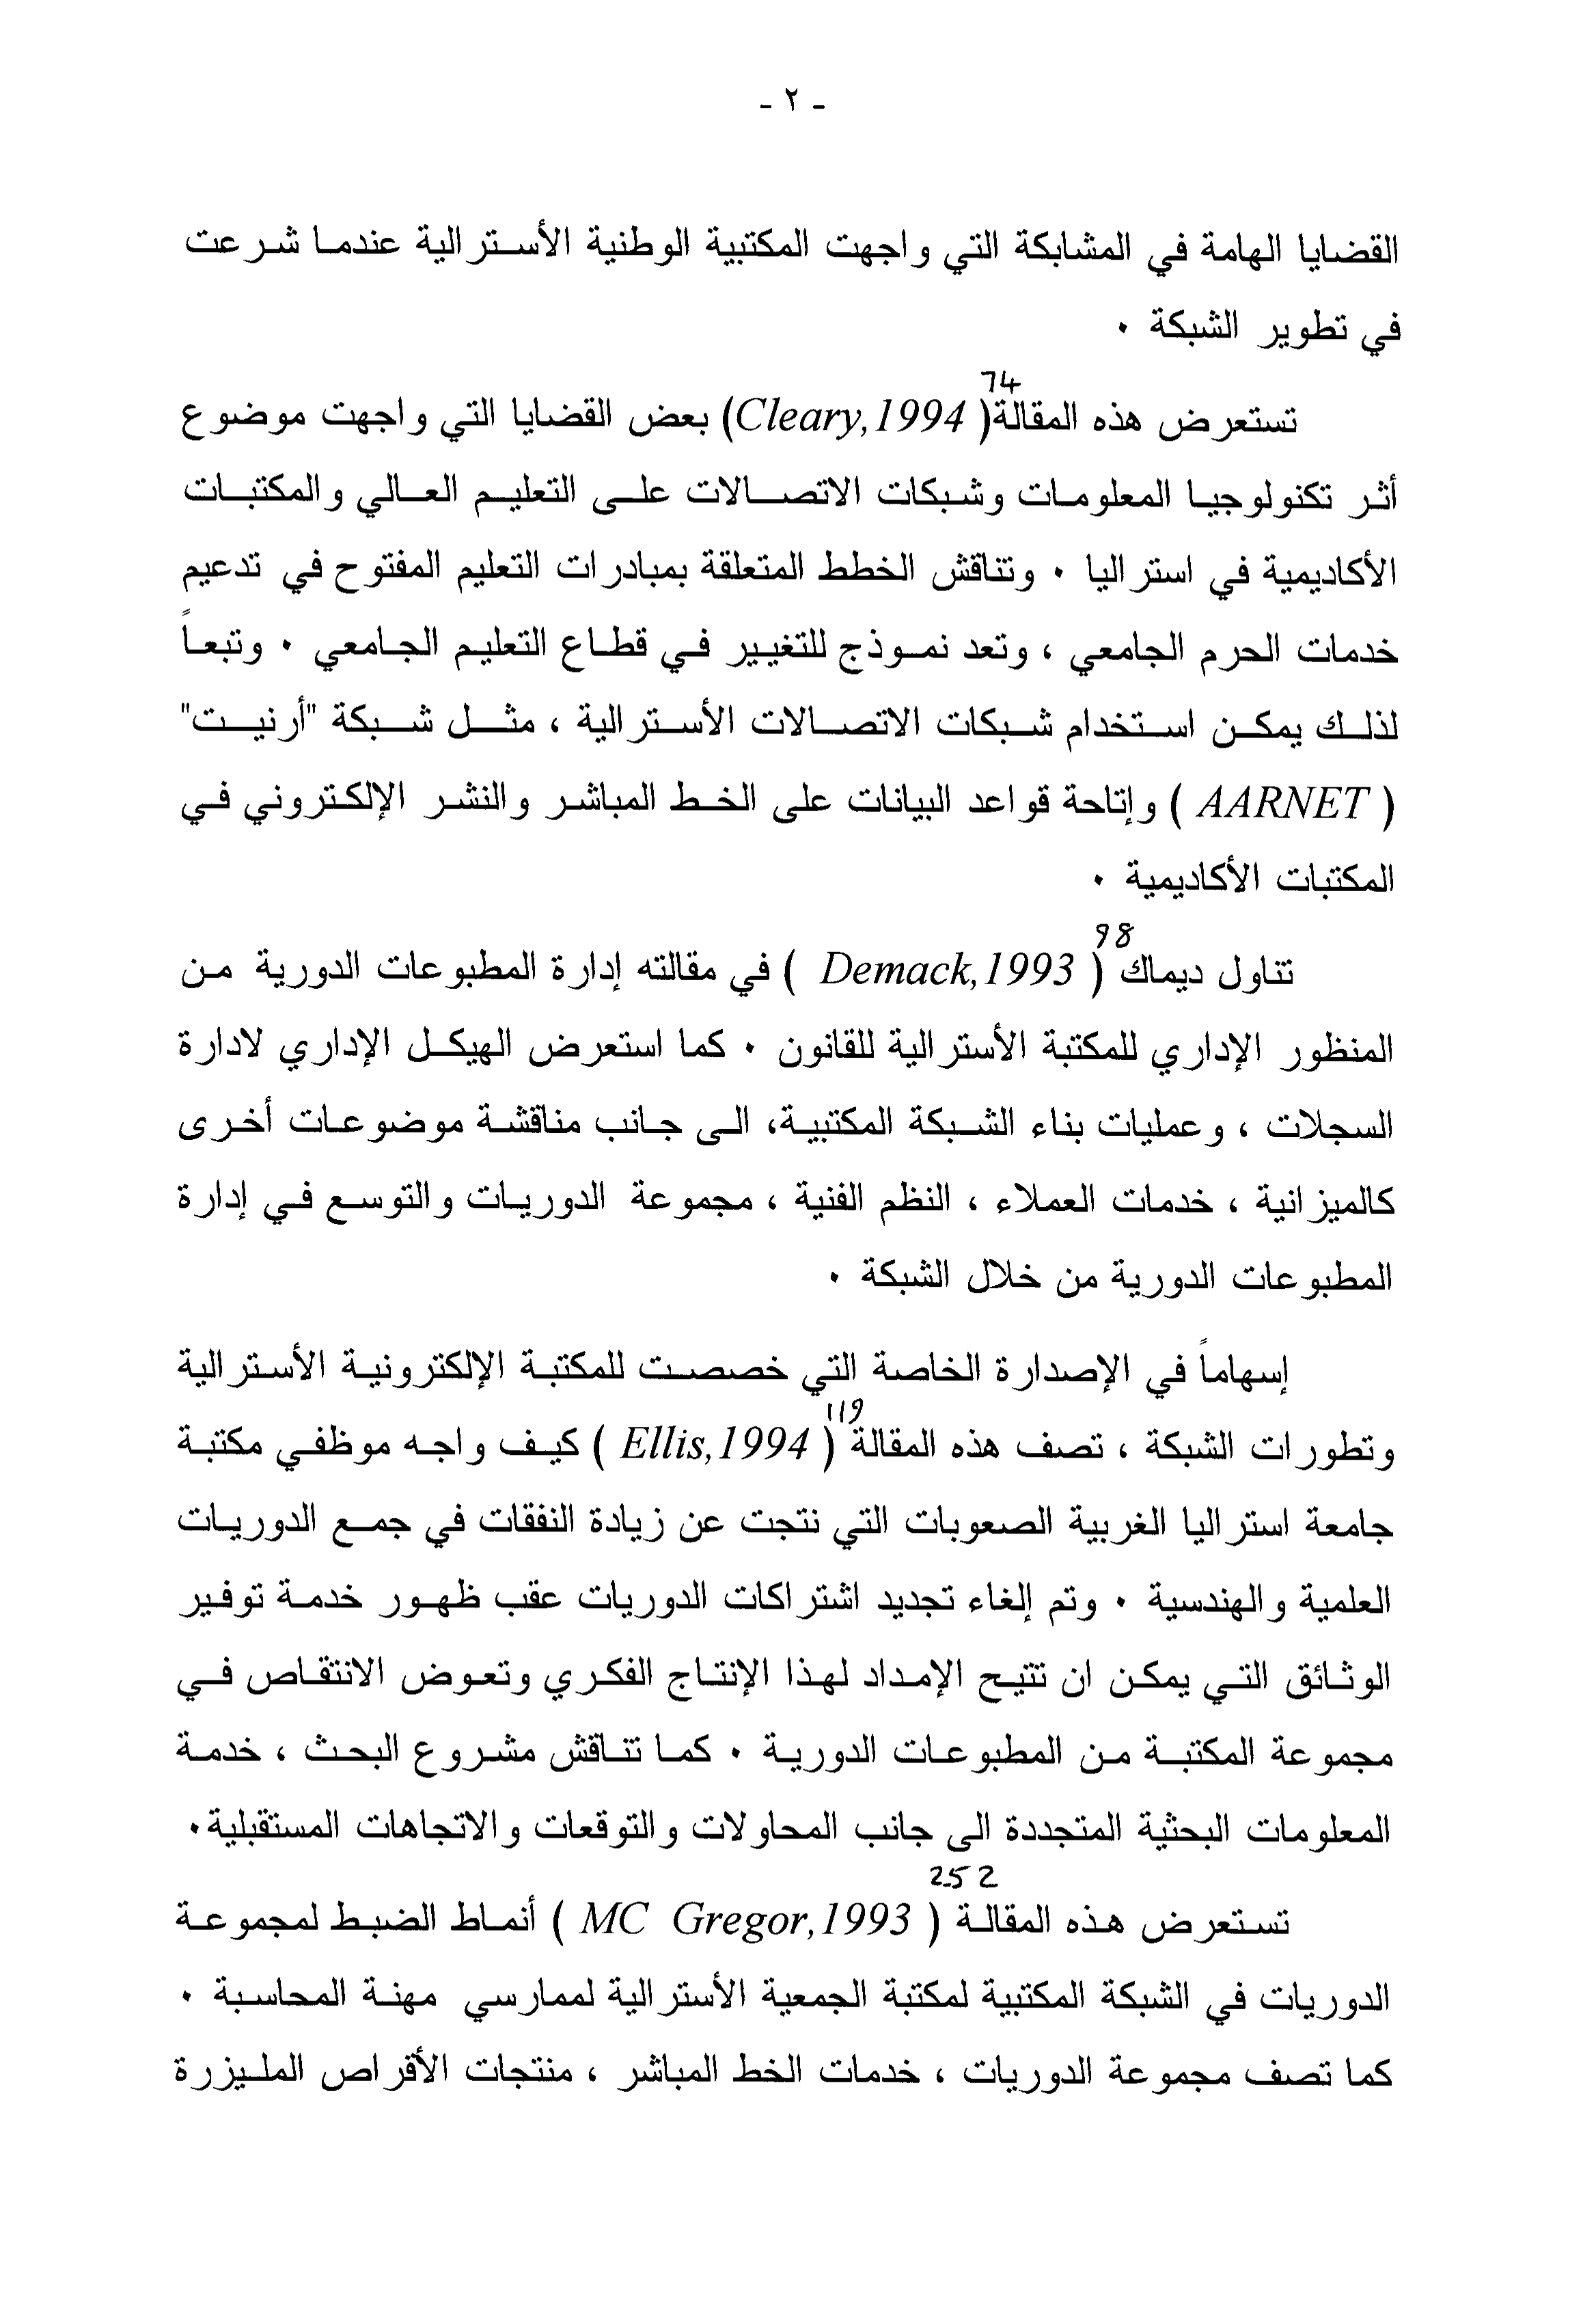 - ٢ -
القضايا الهامة في المشابكة التي واجهت المكتبية الوطنية الأسترالية عندما شرعت
في تطوير الشبكة ٠
74
تستعرض هذه المقالة( Cleary,1994) بعض القضايا التي واجهت موضوع
أثر تكنولوجيا المعلومات وشبكات الاتصالات على التعليم العالي والمكتبات
الأكاديمية في استراليا ٠ وتناقش الخطط المتعلقة بمبادرات التعليم المفتوح في تدعيم
خدمات الحرم الجامعي ، وتعد نموذج للتغيير في قطاع التعليم الجامعي ٠ وتبعاً
لذلك يمكن استخدام شبكات الاتصالات الأسترالية ، مثل شبكة "أرنيت"
( AARNET ) وإتاحة قواعد البيانات على الخط المباشر والنشر الإلكتروني في
المكتبات الأكاديمية ٠
98
تناول ديماك ( Demack,1993 ) في مقالته إدارة المطبوعات الدورية من
المنظور الإداري للمكتبة الأسترالية للقانون ٠ كما استعرض الهيكل الإداري لادارة
السجلات ، وعمليات بناء الشبكة المكتبية، الى جانب مناقشة موضوعات أخرى
كالميزانية ، خدمات العملاء ، النظم الفنية ، مجموعة الدوريات والتوسع في إدارة
المطبوعات الدورية من خلال الشبكة ٠
إسهاماً في الإصدارة الخاصة التي خصصت للمكتبة الإلكترونية الأسترالية
119
وتطورات الشبكة ، تصف هذه المقالة ( Ellis,1994 ) كيف واجه موظفي مكتبة
جامعة استراليا الغربية الصعوبات التي نتجت عن زيادة النفقات في جمع الدوريات
العلمية والهندسية ٠ وتم إلغاء تجديد اشتراكات الدوريات عقب ظهور خدمة توفير
الوثائق التي يمكن ان تتيح الإمداد لهذا الإنتاج الفكري وتعوض الانتقاص في
مجموعة المكتبة من المطبوعات الدورية ٠ كما تناقش مشروع البحث ، خدمة
المعلومات البحثية المتجددة الى جانب المحاولات والتوقعات والاتجاهات المستقبلية٠
252
تستعرض هذه المقالة ( MC Gregor,1993 ) أنماط الضبط لمجموعة
الدوريات في الشبكة المكتبية لمكتبة الجمعية الأسترالية لممارسي مهنة المحاسبة ٠
كما تصف مجموعة الدوريات ، خدمات الخط المباشر ، منتجات الأقراص المليزرة